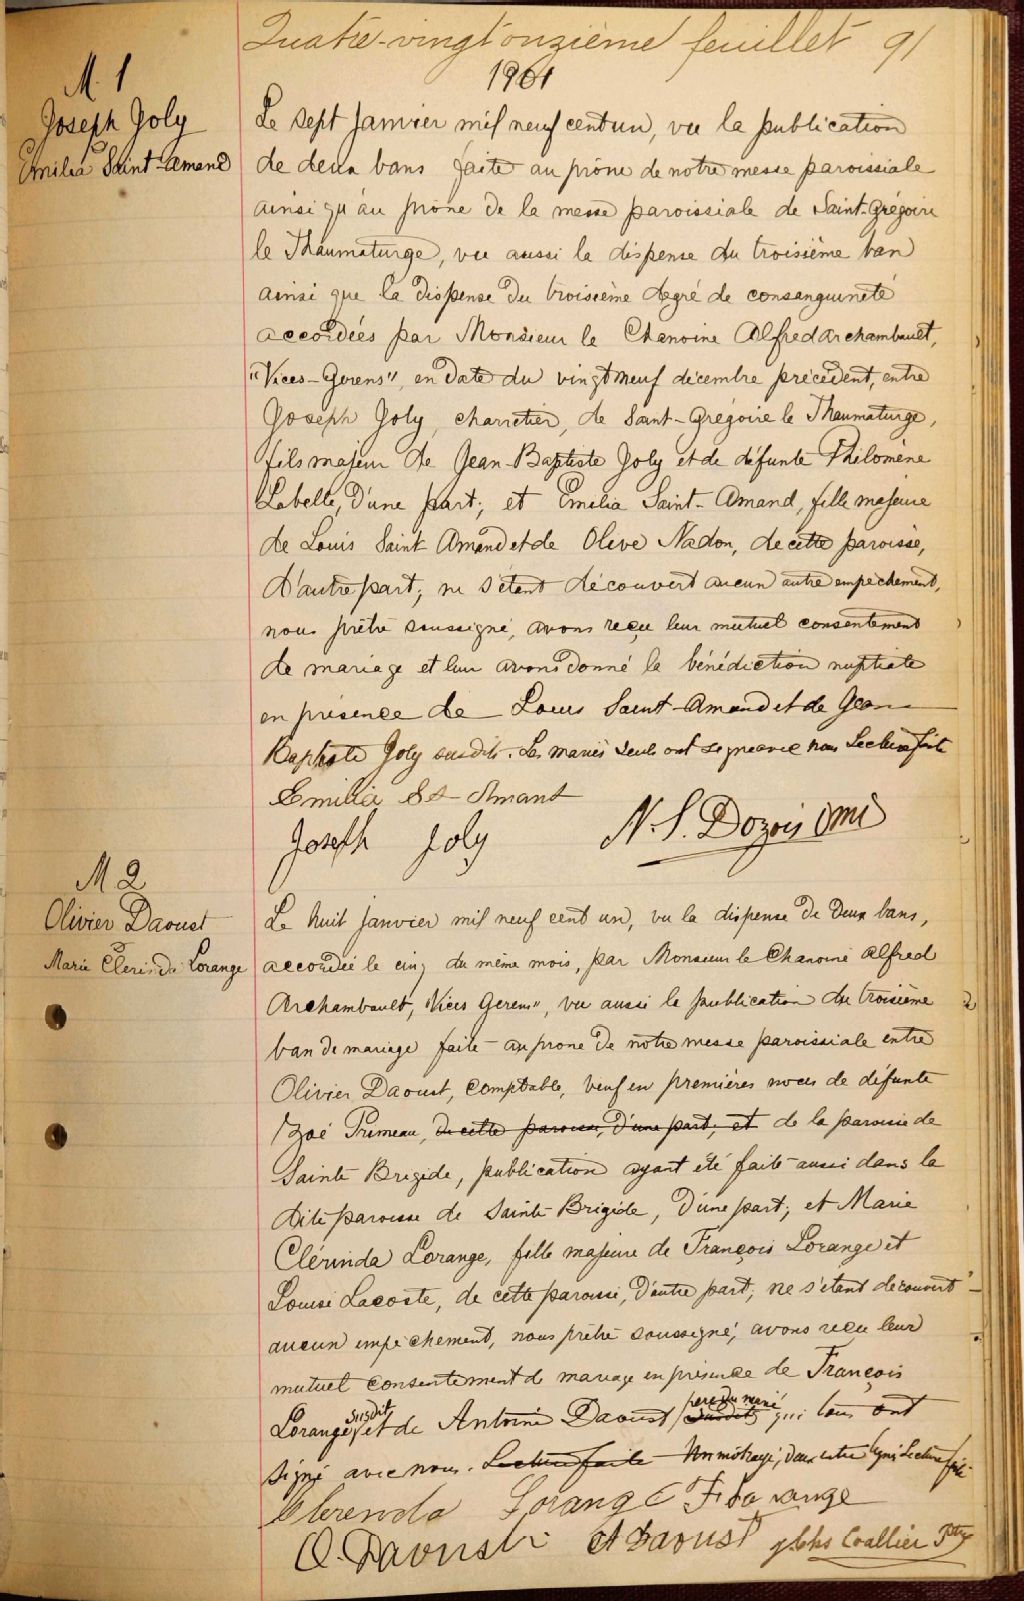 Quatre-vingt onzième feuillet 91
1901
M. 1
Joseph Joly
Emilia Saint-Amand
Le sept janvier mil neuf cent un, vu la publication
de deux bans faite au prône de notre messe paroissiale
ainsi qu'au prône de la messe paroissiale de Saint-Grégoire
le Thaumaturge, vu aussi la dispense du troisième ban
ainsi que la dispense du troisième degré de consanguinité
accordées par Monsieur le Chanoine Alfred Archambault,
"Vices-Gerens", en date du vingt neuf décembre précédent, entre
Joseph Joly, charretier, de Saint-Grégoire le Thaumaturge,
fils majeur de Jean-Baptiste Joly et de défunte Philomène
Labelle, d'une part; et Emilia Saint-Amand, fille majeure
de Louis Saint Amand et de Olive Nadon, de cette paroisse,
d'autre part; ne s'étant découvert aucun autre empêchement,
nous prêtre soussigné, avons reçu leur mutuel consentement
de mariage et leur avons donné la bénédiction nuptiale
en présence de Louis Saint-Amand et de Jean
Baptiste Joly susdits. Les mariés seuls ont signé avec nous Lecture faite
Emilia St Amant
Joseph Joly
N. S. Dozois omi
M 2
Olivier Daoust
Marie Clerinda Lorange
Le huit janvier mil neuf cent un, vu la dispense de deux bans,
accordée le cinq du même mois, par Monsieur le Chanoine Alfred
Archambault, "Vices Gerens", vu aussi la publication du troisième
ban de mariage faite au prone de notre messe paroissiale entre
Olivier Daoust, comptable, veuf en premières noces de défunte
Zoé Primeau, de cette paroisse, d'une part; et de la paroisse de
Sainte Brigide, publication ayant été faite aussi dans la
dite paroisse de Sainte Brigide, d'une part; et Marie
Clérinda Lorange, fille majeure de François Lorange et
Louise Lacoste, de cette paroisse, d'autre part; ne s'étant découvert
aucun empêchement, nous prêtre soussigné, avons reçu leur
mutuel consentement de mariage en présence de François
Lorange susdit et de Antoine Daoust susdits père du marié qui tous ont
signé avec nous. Lecture faite Un mot rayé, deux entre lignes Lecture faite
Clerenda Lorange F Lorange
O. Daoust A Daoust Coallier Ptre